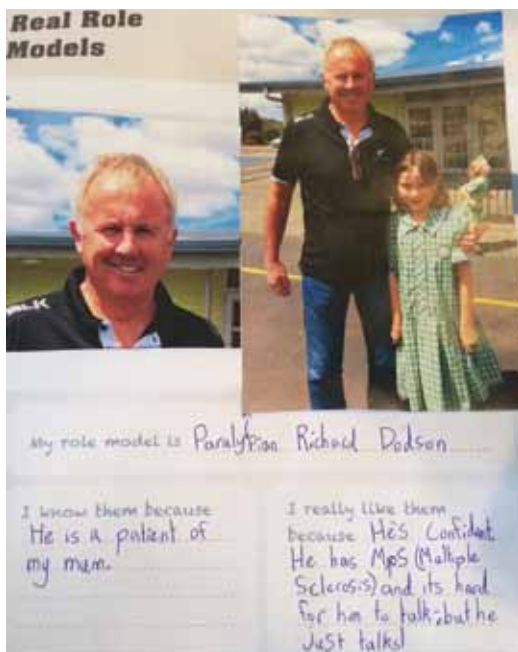 Real Role
Models
BLK
My role model is Paralympian Richard Dodson
I know them because
He is a patient of
my mum.
I really like them
because He's Confident.
He has MpS (Multiple
Sclerosis) and its hard
for him to talk; but he
Just talks!